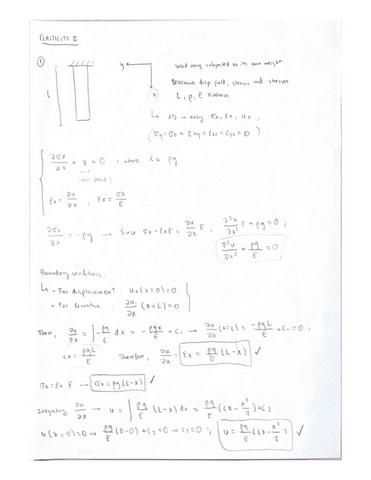 ELASTICITY II
① y ← solid only subjected to its own weight.
Determine disp field, strains and stresses
L x L, ρ, E known
↳ 1D → only σx, εx, ux,
(σy = σz = τxy = τxz = τyz = 0)
∂σx/∂x + X = 0 ; where X = ρg
εx = ∂u/∂x , εx = σx/E
∂σx/∂x = -ρg → Since σx = εx E = ∂u/∂x E ; ∂²u/∂x² E + ρg = 0 ;
∂²u/∂x² + ρg/E = 0
Boundary conditions:
↳ - For displacement: ux (x=0) = 0
- For derivative: ∂u/∂x (x=L) = 0
Then, ∂u/∂x = ∫ - ρg/E dx = - ρgx/E + C1 → ∂u/∂x (x=L) = - ρgL/E + C1 = 0 ;
C1 = ρgL/E Therefore, ∂u/∂x = εx = ρg/E (L-x) ✓
σx = εx E → σx = ρg (L-x) ✓
Integrating ∂u/∂x → u = ∫ ρg/E (L-x) dx = ρg/E (Lx - x²/2) + C2
u (x=0) = 0 → ρg/E (0-0) + C2 = 0 → C2 = 0 ; u = ρg/E (Lx - x²/2) ✓